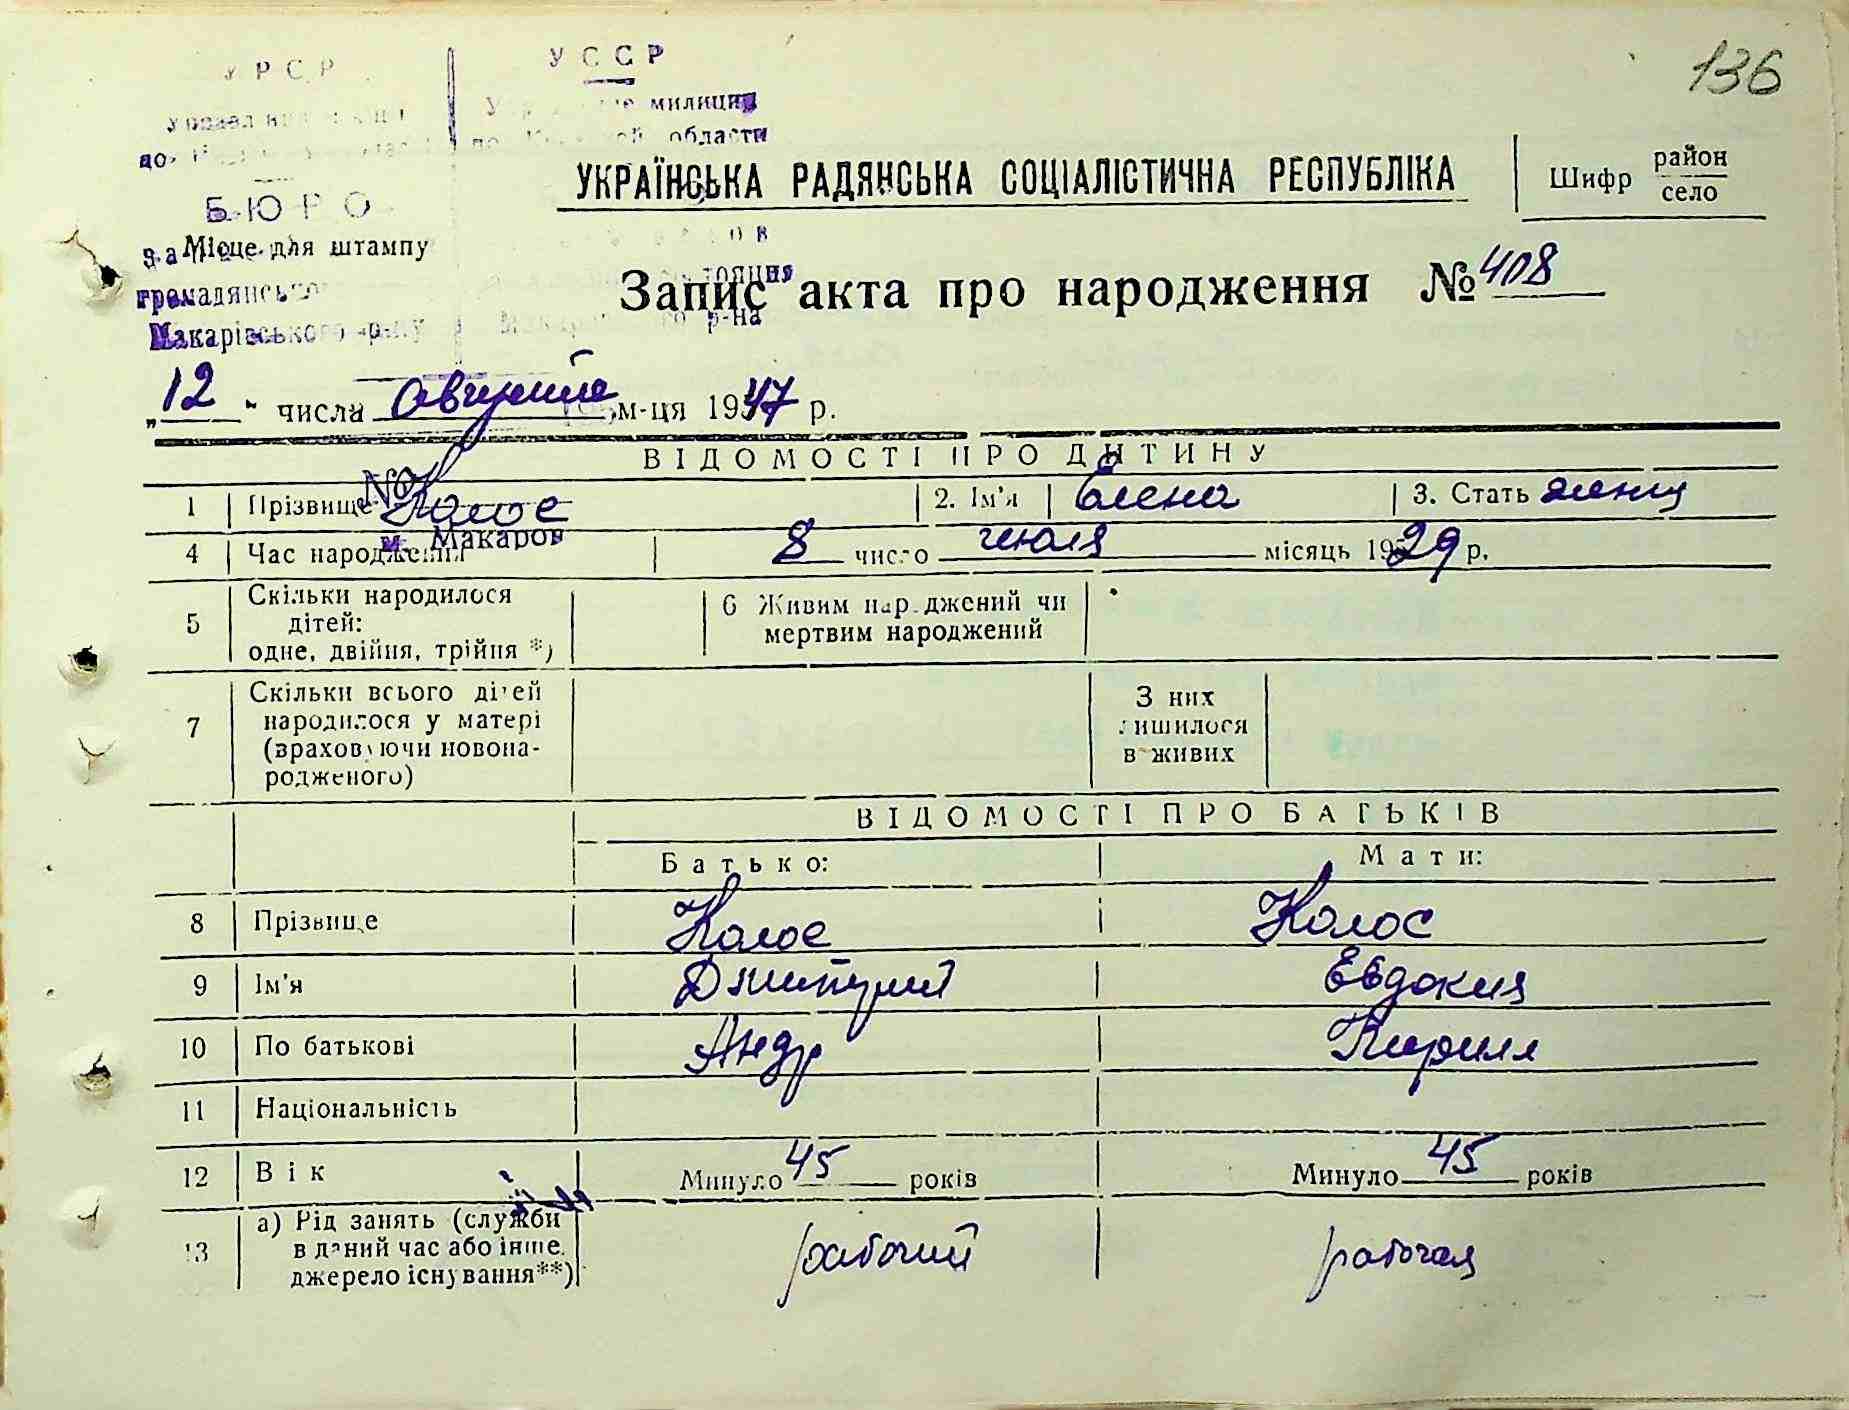 136
УРСР
УССР
милиции
по области
БЮРО
УКРАЇНСЬКА РАДЯНСЬКА СОЦІАЛІСТИЧНА РЕСПУБЛІКА
Шифр район село
Місце для штампу
Запис акта про народження № 408
Макарівського р-ну р-на
„12“ числа августа м-ця 1947 р.
ВІДОМОСТІ ПРО ДИТИНУ
№
1 Прізвище Колос 2. Ім'я Елена 3. Стать женщ
м. Макаров
4 Час народження 8 число июля місяць 1929 р.
5 Скільки народилося дітей: одне, двійня, трійня *) 6 Живим народжений чи мертвим народжений
7 Скільки всього дітей народилося у матері (враховуючи новонародженого) З них лишилося в живих
ВІДОМОСТІ ПРО БАТЬКІВ
Батько: Мати:
8 Прізвище Колос Колос
9 Ім'я Дмитрий Евдокия
10 По батькові Андр Кирилл
11 Національність
12 Вік Минуло 45 років Минуло 45 років
13 а) Рід занять (служби в даний час або інше джерело існування**) рабочий рабочая